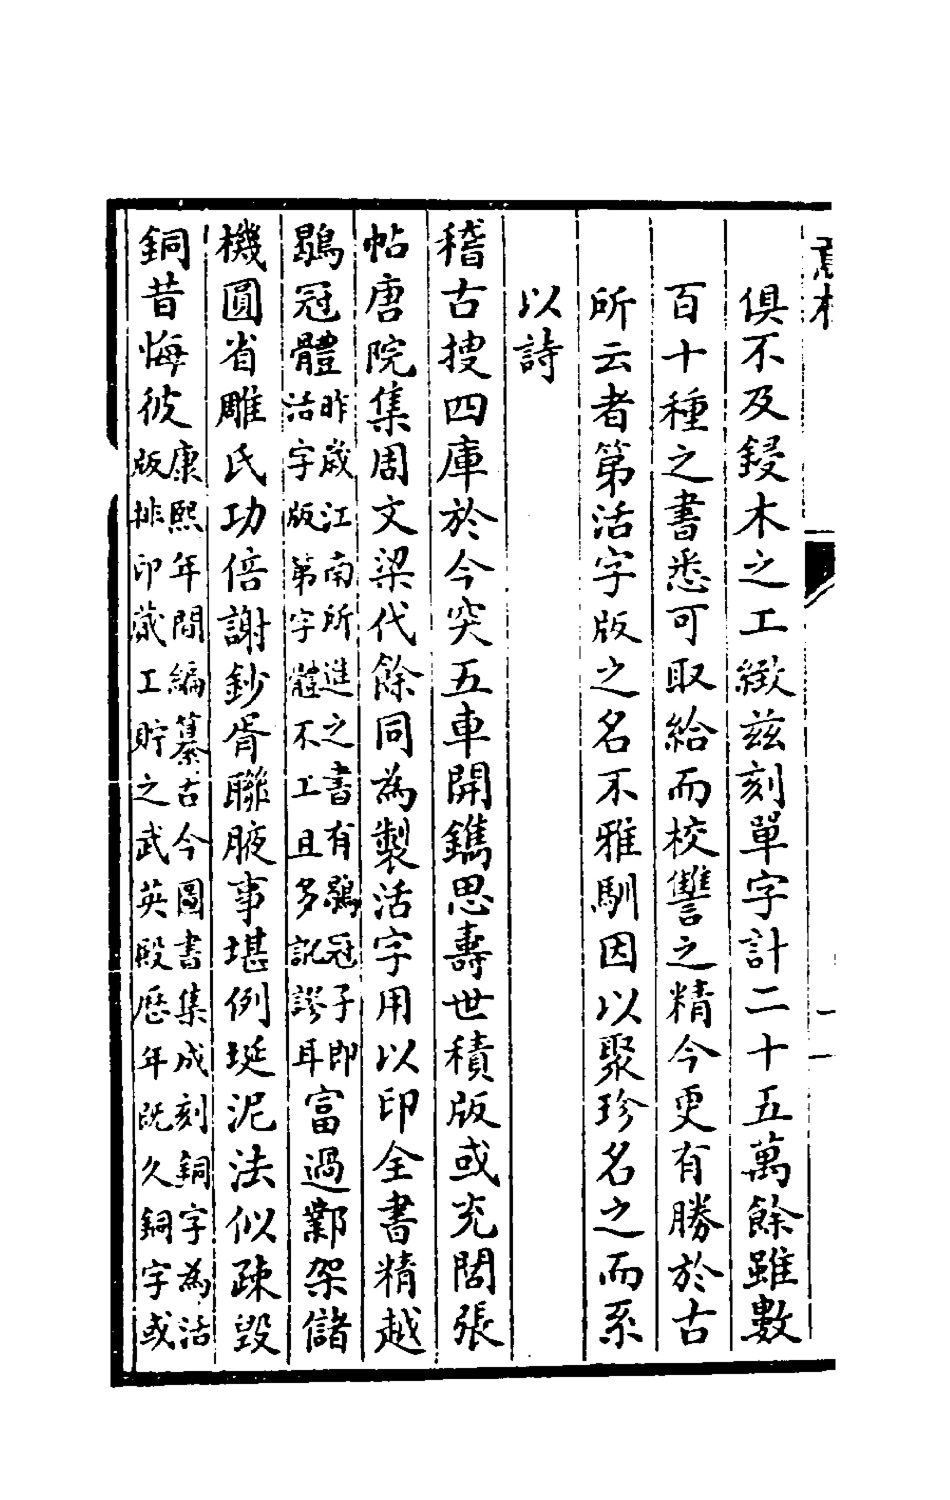 俱不及鋟木之工緻兹刻單字計二十五萬餘雖數
百十種之書悉可取給而校讐之精今更有勝於古
所云者第活字版之名不雅馴因以聚珍名之而系
以詩
稽古搜四庫於今突五車開鐫思壽世積版或充閭張
帖唐院集周文梁代餘同為製活字用以印全書精越
鶡冠體昨歲江南所進之書有鶡冠子即
活字版第字體不工且多訛謬耳富過鄴架儲
機圓省雕氏功倍謝鈔胥聯腋事堪例埏泥法似疎毀
銅昔悔彼康熙年間編纂古今圖書集成刻銅字為活
版排印蕆工貯之武英殿歷年既久銅字或